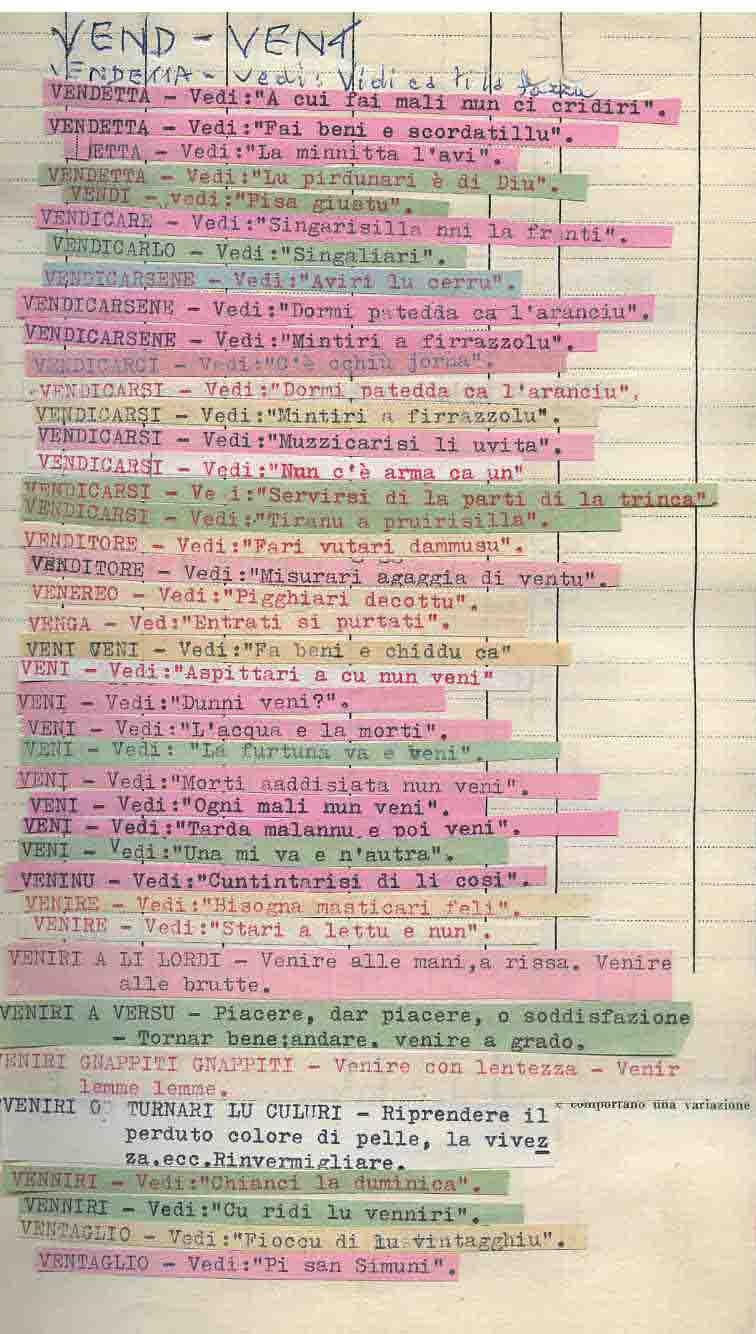 VEND - VENT
VENDETTA - Vedi: Vidi ca ti la
VENDETTA - Vedi:"A cui fai mali nun ci cridiri".
VENDETTA - Vedi:"Fai beni e scordatillu".
ETTA - Vedi:"La minnitta l'avi".
VENDETTA - Vedi:"Lu pirdunari è di Diu".
VENDI - vedi:"Pisa giustu".
VENDICARE - Vedi:"Singarisilla nni la franti".
VENDICARLO - Vedi:"Singaliari".
VENDICARSENE - Vedi:"Aviri lu cerru".
VENDICARSENE - Vedi:"Dormi patedda ca l'aranciu".
VENDICARSENE - Vedi:"Mintiri a firrazzolu".
VENDICARCI - Vedi:"C'è cchiù jorna".
VENDICARSI - Vedi:"Dormi patedda ca l'aranciu".
VENDICARSI - Vedi:"Mintiri a firrazzolu".
VENDICARSI - Vedi:"Muzzicarisi li uvita".
VENDICARSI - Vedi:"Nun c'è arma ca un"
VENDICARSI - Ve i:"Servirsi di la parti di la trinca"
VENDICARSI - Vedi:"Tiranu a pruirisilla".
VENDITORE - Vedi:"Fari vutari dammusu".
VENDITORE - Vedi:"Misurari agaggia di ventu".
VENEREO - Vedi:"Pigghiari decottu".
VENGA - Ved:"Entrati si purtati".
VENI VENI - Vedi:"Fa beni e chiddu ca"
VENI - Vedi:"Aspittari a cu nun veni"
VENI - Vedi:"Dunni veni?".
VENI - Vedi:"L'acqua e la morti".
VENI - Vedi: "La furtuna va e veni".
VENI - Vedi:"Morti aaddisiata nun veni".
VENI - Vedi:"Ogni mali nun veni".
VENI - Vedi:"Tarda malannu e poi veni".
VENI - Vedi:"Una mi va e n'autra".
VENINU - Vedi:"Cuntintarisi di li cosi".
VENIRE - Vedi:"Bisogna masticari feli".
VENIRE - Vedi:"Stari a lettu e nun".
VENIRI A LI LORDI - Venire alle mani,a rissa. Venire
alle brutte.
VENIRI A VERSU - Piacere, dar piacere, o soddisfazione
- Tornar bene;andare, venire a grado.
VENIRI GNAPPITI GNAPPITI - Venire con lentezza - Venir
lemme lemme.
VENIRI O TURNARI LU CULURI - Riprendere il
e comportano una variazione
perduto colore di pelle, la vivez
za,ecc.Rinvermigliare.
VENNIRI - Vedi:"Chianci la duminica".
VENNIRI - Vedi:"Cu ridi lu venniri".
VENTAGLIO - Vedi:"Fioccu di lu vintagghiu".
VENTAGLIO - Vedi:"Pi san Simuni".